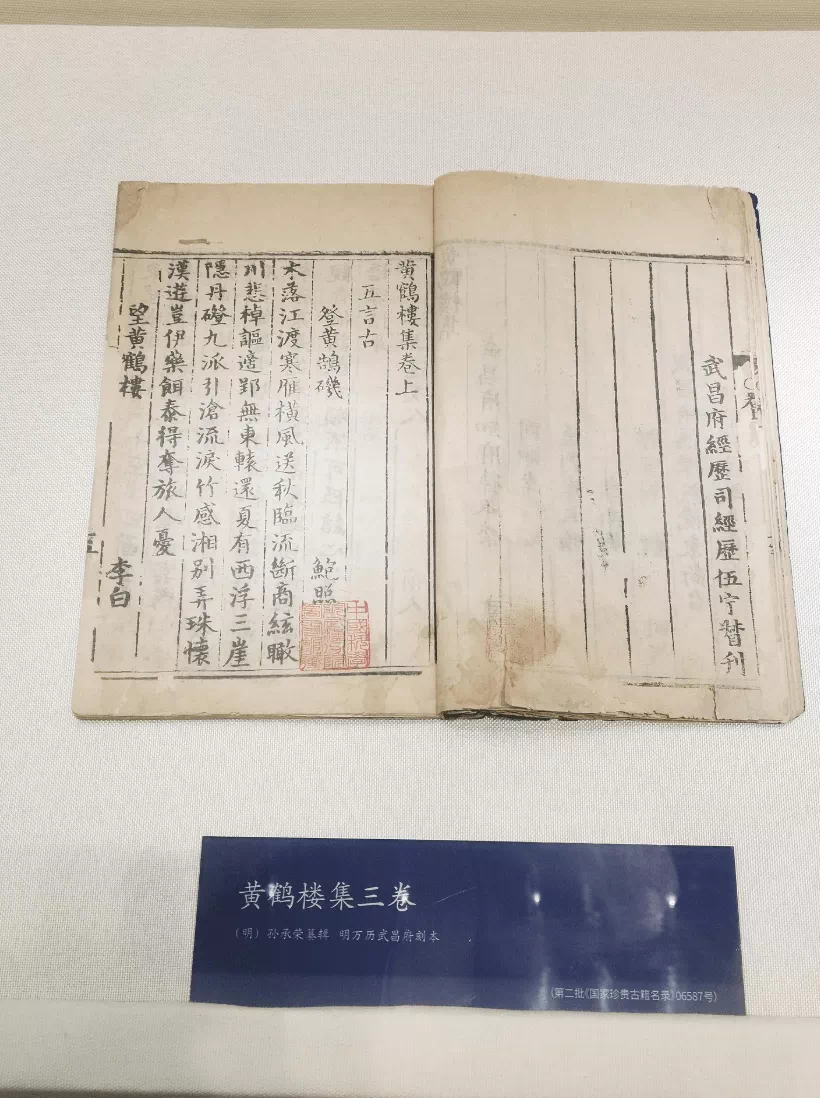 武昌府經歷司經歷伍宁督刊
黄鶴樓集卷上
五言古
登黄鵠磯 鮑照
木落江渡寒雁横風送秋臨流斷商絃瞰
川悲棹謳適郢無東轅還夏有西浮三崖
隱丹磴九派引滄流淚竹感湘别弄珠懷
漢遊豈伊藥餌泰得奪旅人憂
望黄鶴樓 李白
黄鹤楼集三卷
（明）孙承荣纂辑 明万历武昌府刻本
(第二批《国家珍贵古籍名录》06587号)